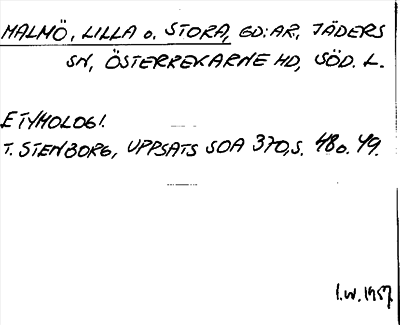 MALMÖ, LILLA o. STORA, GD:AR, JÄDERS
SN, ÖSTERREKARNE HD, SÖD. L.
ETYMOLOGI.
T. STENBORG, UPPSATS SOA 370, S. 48 o. 49.
I.W. 1957